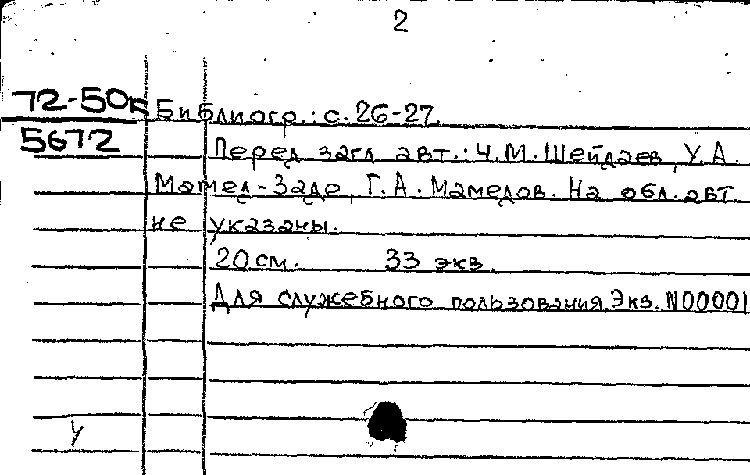 2
72-50к
5672
Библиогр.: с. 26-27.
Перед загл. авт.: Ч.М. Шейдаев, У.А.
Мамед-Заде, Г.А. Мамедов. На обл. авт.
не указаны.
20 см. 33 экз.
Для служебного пользования. Экз. N00001
У